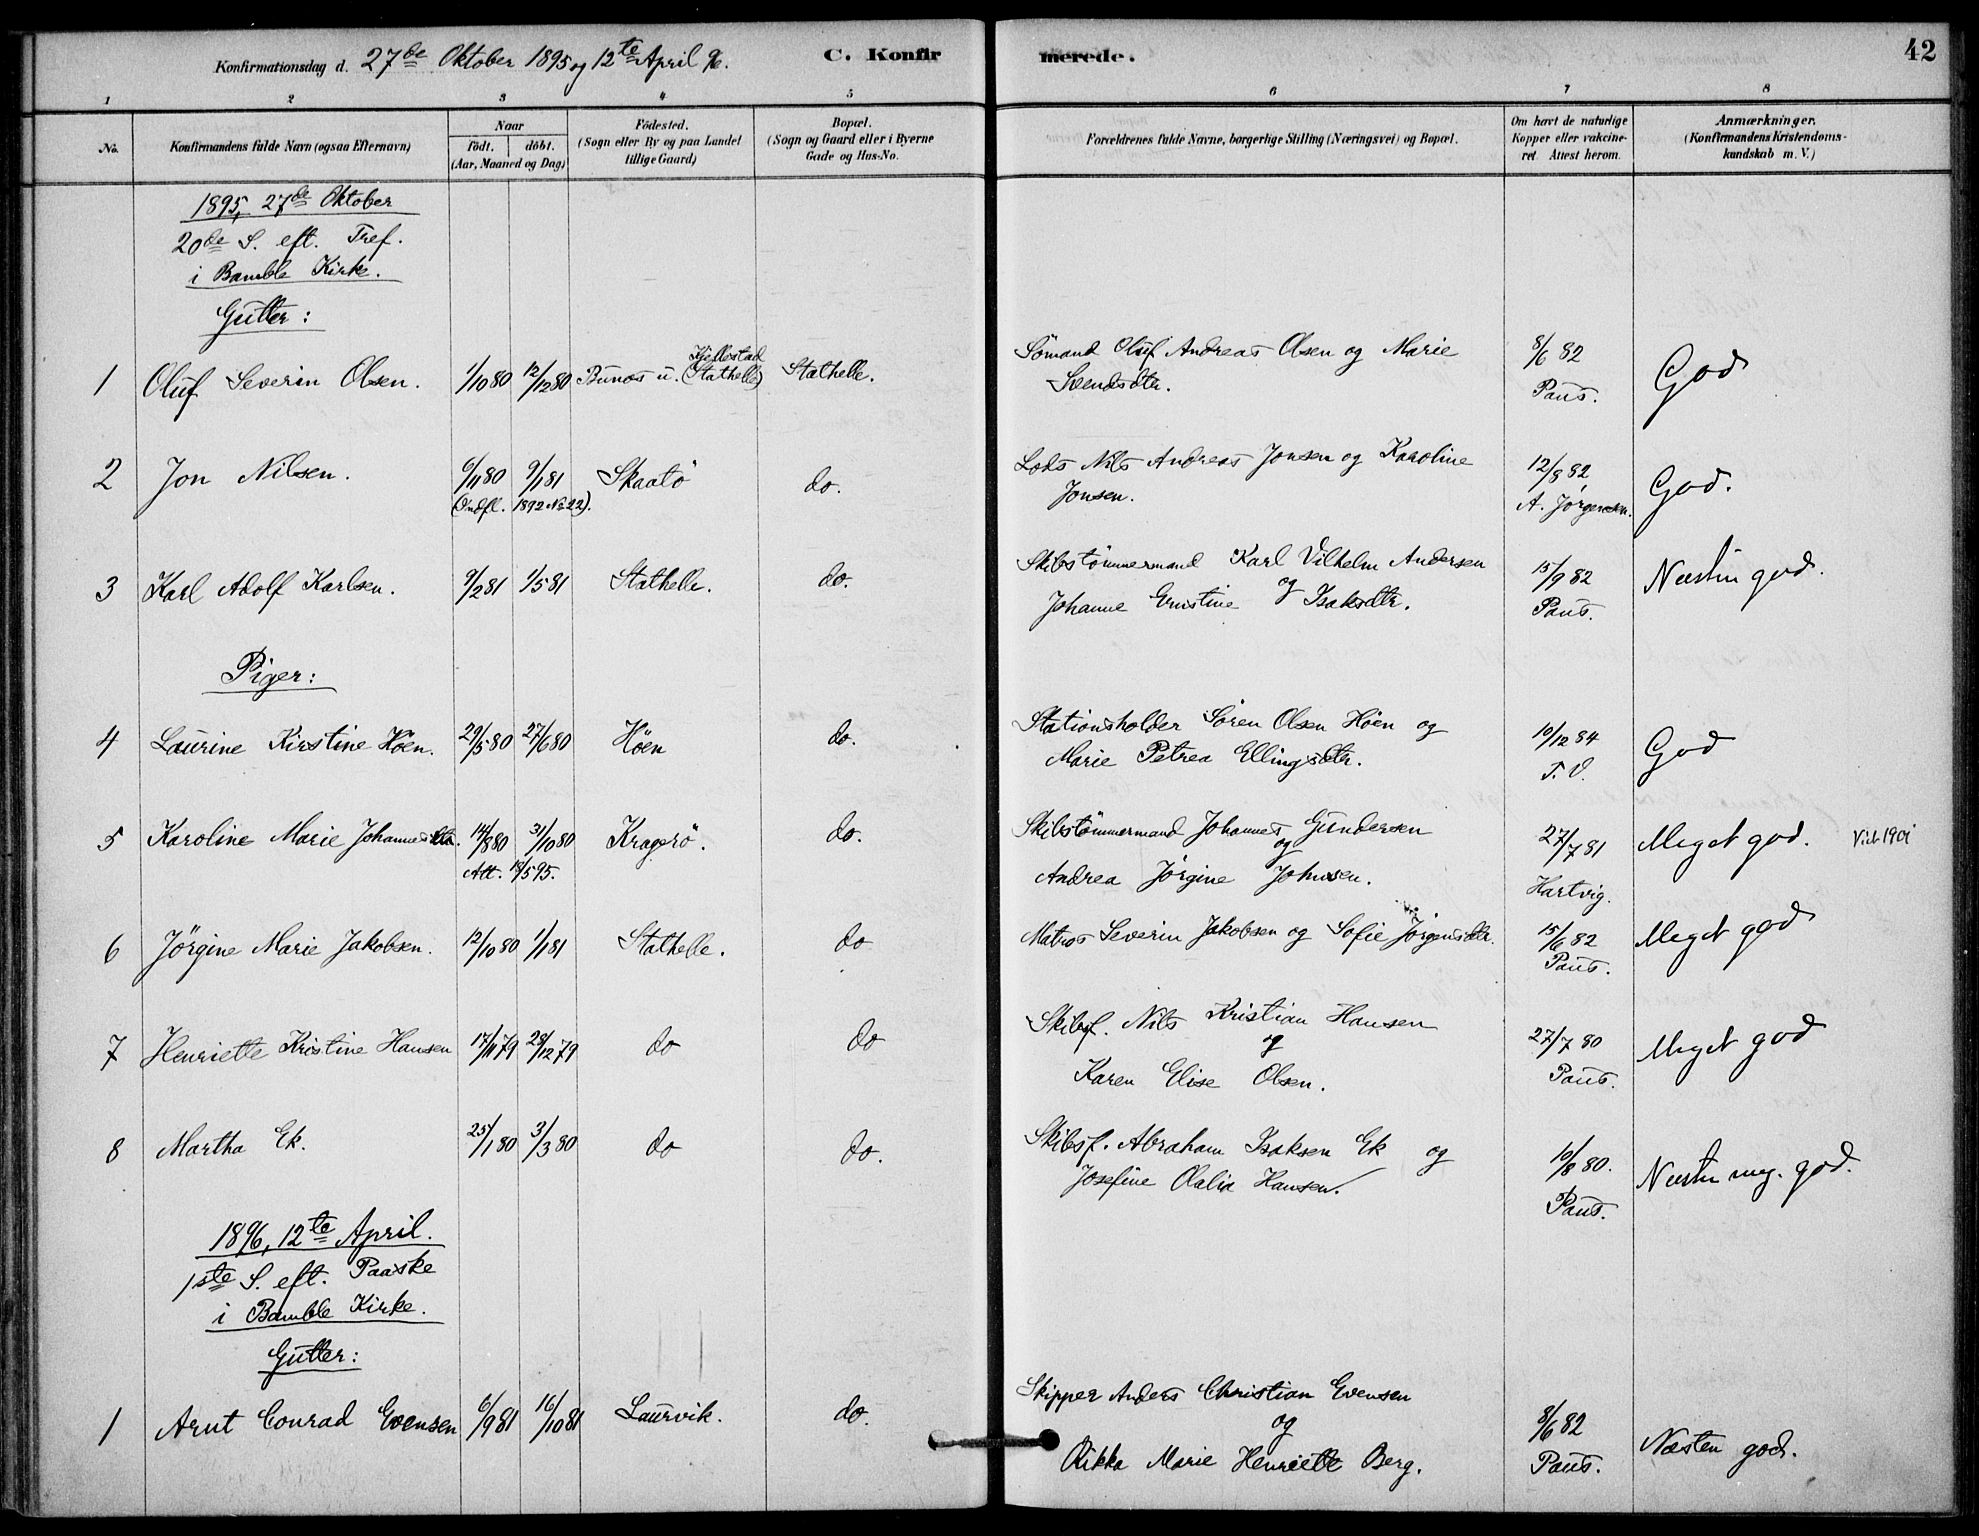 Konfirmationsdag d. 27de Oktober 1895 og 12te April 96. C. Konfirmerede. 42
1 2 3 4 5 6 7 8
No. Konfirmandens fulde Navn (ogsaa Efternavn) Naar födt. döbt. (Aar, Maaned og Dag) Födested. (Sogn eller By og paa Landet tillige Gaard) Bopæl. (Sogn og Gaard eller i Byerne Gade og Hus-No. Forældrenes fulde Navne, borgerlige Stilling (Næringsvei) og Bopæl. Om havt de naturlige Kopper eller vakcineret. Attest herom. Anmærkninger. (Konfirmandens Kristendomskundskab m. V.)
1895, 27de Oktober
20de S. eft. Tref.
i Bamble Kirke.
Gutter:
1 Oluf Severin Olsen. 1/10 80 12/12 80 u. Kjellestad (Stathelle) Stathelle. Sömand Oluf Andreas Olsen og Marie Svendsdtr. 8/6 82 Paus. God
2 Jon Nilsen. 6/11 80 9/1 81 (Indfl. 1892 No 22). Skaatö do. Lods Nils Andreas Jonsen og Karoline Jonsen. 12/8 82 A. Jørgensen. God.
3 Karl Adolf Karlsen. 9/2 81 1/5 81 Stathelle. do. Skibstömmermand Karl Vilhelm Andersen og Johanne Ernstine Isaksdtr. 15/9 82 Paus. Næsten god.
Piger:
4 Laurine Kirstine Höen. 29/5 80 27/6 80 Höen do. Stationsholder Sören Olsen Höen og Marie Petrea Ellingsdtr. 10/12 84 T. V. God
5 Karoline Marie Johannesdtr. 14/8 80 31/10 80 Att. 18/5 95. Kragerö. do. Skibstömmermand Johannes Gundersen og Andrea Jörgine Johnsen. 27/7 81 Hartvig. Meget god. Vid. 1901
6 Jörgine Marie Jakobsen. 12/10 80 1/1 81 Stathelle. do Matros Severin Jakobsen og Sofie Jörgensdtr. 15/6 82 Paus. Meget god
7 Henriette Kristine Hansen 17/11 79 28/12 79 do do Skibsf. Nils Kristian Hansen og Karen Elise Olsen. 27/7 80 Paus. Meget god
8 Martha Ek. 25/1 80 3/3 80 do do. Skibsf. Abraham Isaksen Ek og Josefine Olalia Hansen. 10/8 80. Paus. Næsten meg. god.
1896, 12te April.
1ste S. eft. Paaske
i Bamble Kirke.
Gutter:
1 Arnt Conrad Evensen 6/9 81 16/10 81 Laurvik. do. Skipper Anders Christian Evensen og Rikka Marie Henriette Berg. 8/6 82 Paus. Næsten god.